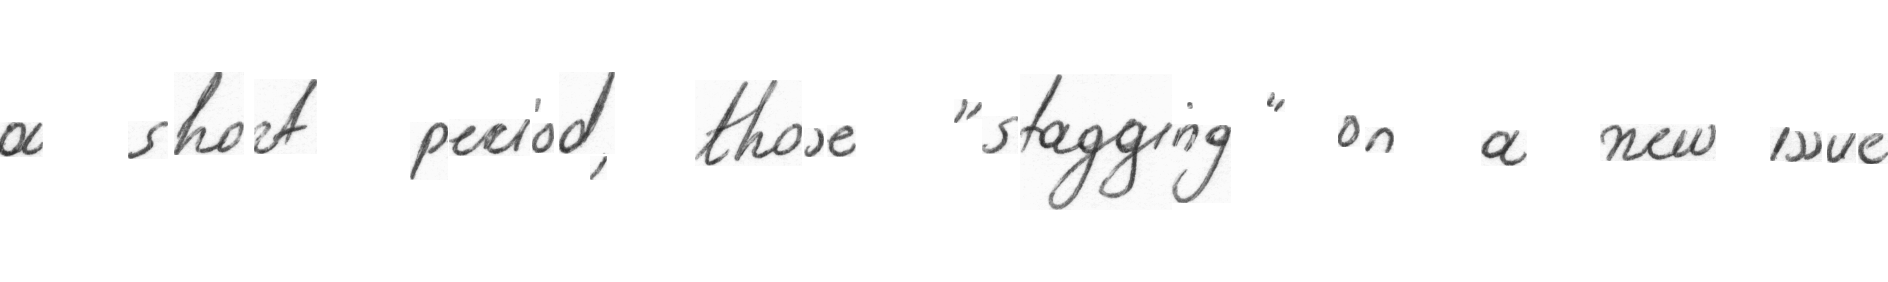 a short period, those "stagging" on a new issue